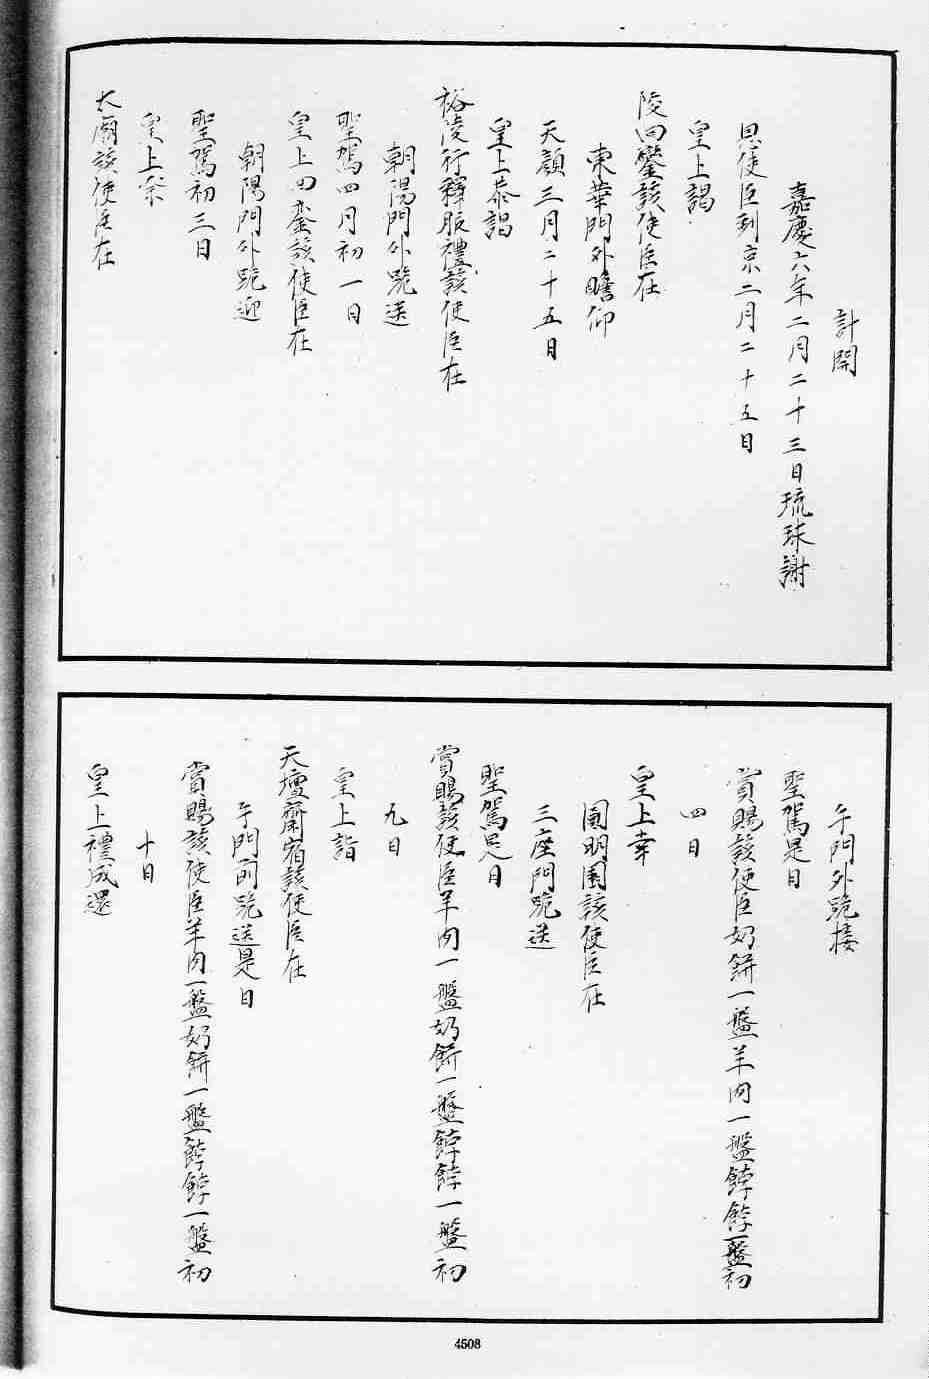 計開
嘉慶六年二月二十三日琉球謝
恩使臣到京二月二十五日
皇上謁
陵回鑾該使臣在
東華門外瞻仰
天顏三月二十五日
皇上恭謁
裕陵行釋服禮該使臣在
朝陽門外跪送
聖駕四月初一日
皇上回鑾該使臣在
朝陽門外跪迎
聖駕初三日
皇上祭
太廟該使臣在
午門外跪接
聖駕是日
賞賜該使臣奶餅一盤羊肉一盤餑餑一盤初
四日
皇上幸
圓明園該使臣在
三座門跪送
聖駕是日
賞賜該使臣羊肉一盤奶餅一盤餑餑一盤初
九日
皇上詣
天壇齋宿該使臣在
午門前跪送是日
賞賜該使臣羊肉一盤奶餅一盤餑餑一盤初
十日
皇上禮成還
4508